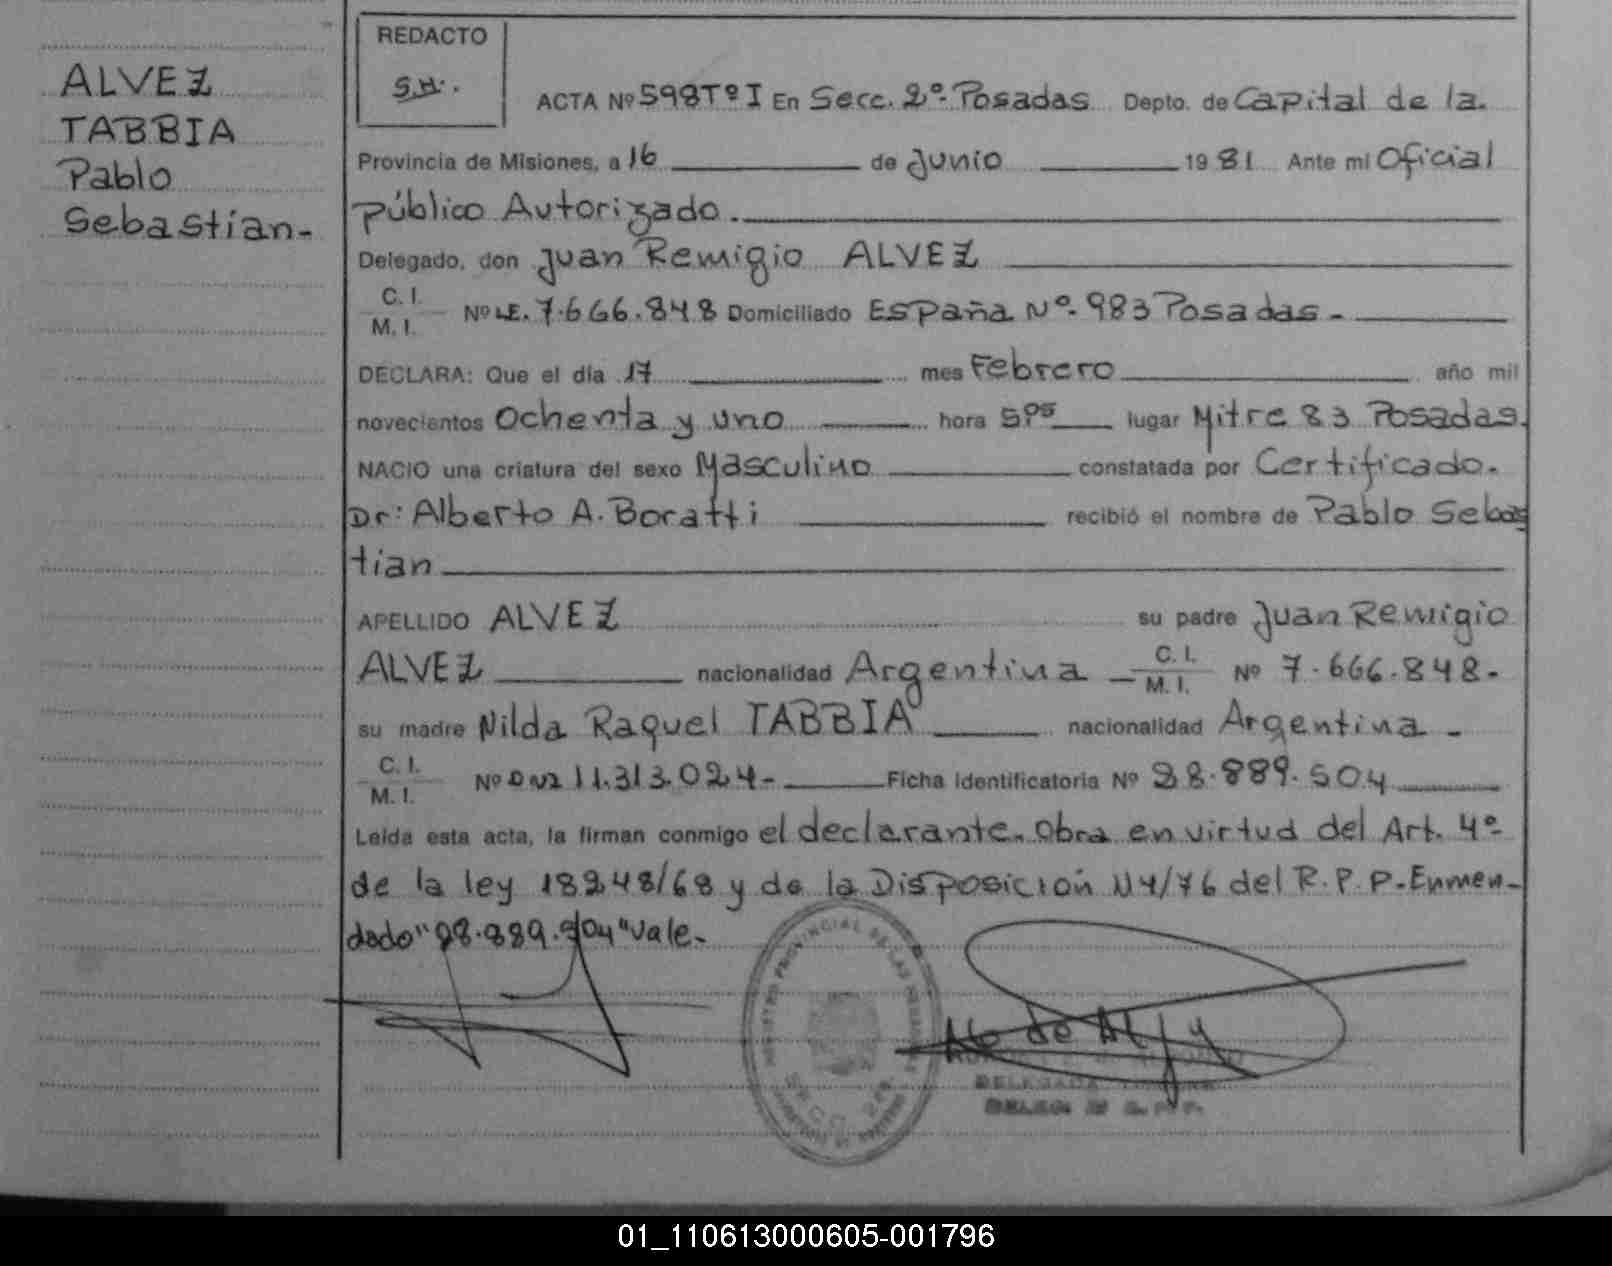 ALVEZ
TABBIA
Pablo
Sebastian-
REDACTO
S.H.
ACTA Nº 598 Tº I En Secc. 2º- Posadas Depto. de Capital de la
Provincia de Misiones, a 16 de Junio 1981 Ante mi Oficial
Público Autorizado.
Delegado, don Juan Remigio ALVEZ
C. I.
M. I. Nº LE. 7.666.848 Domiciliado España Nº- 983 Posadas-
DECLARA: Que el día 17 mes Febrero año mil
novecientos Ochenta y uno hora 5:05 lugar Mitre 83 Posadas.
NACIO una criatura del sexo Masculino constatada por Certificado.
Dr: Alberto A. Boratti recibió el nombre de Pablo Sebas
tian
APELLIDO ALVEZ su padre Juan Remigio
ALVEZ nacionalidad Argentina - C. I. M. I. Nº 7.666.848-
su madre Nilda Raquel TABBIA nacionalidad Argentina -
C. I.
M. I. Nº DNI 11.313.024- Ficha Identificatoria Nº 28.889.504
Leída esta acta, la firman conmigo el declarante. Obra en virtud del Art. 4º-
de la ley 18248/68 y de la Disposición N4/76 del R.P.P-Enmen-
dado "28.889.504" Vale-
REGISTRO PROVINCIAL DE LAS PERSONAS
SECC. 2da.
01_110613000605-001796